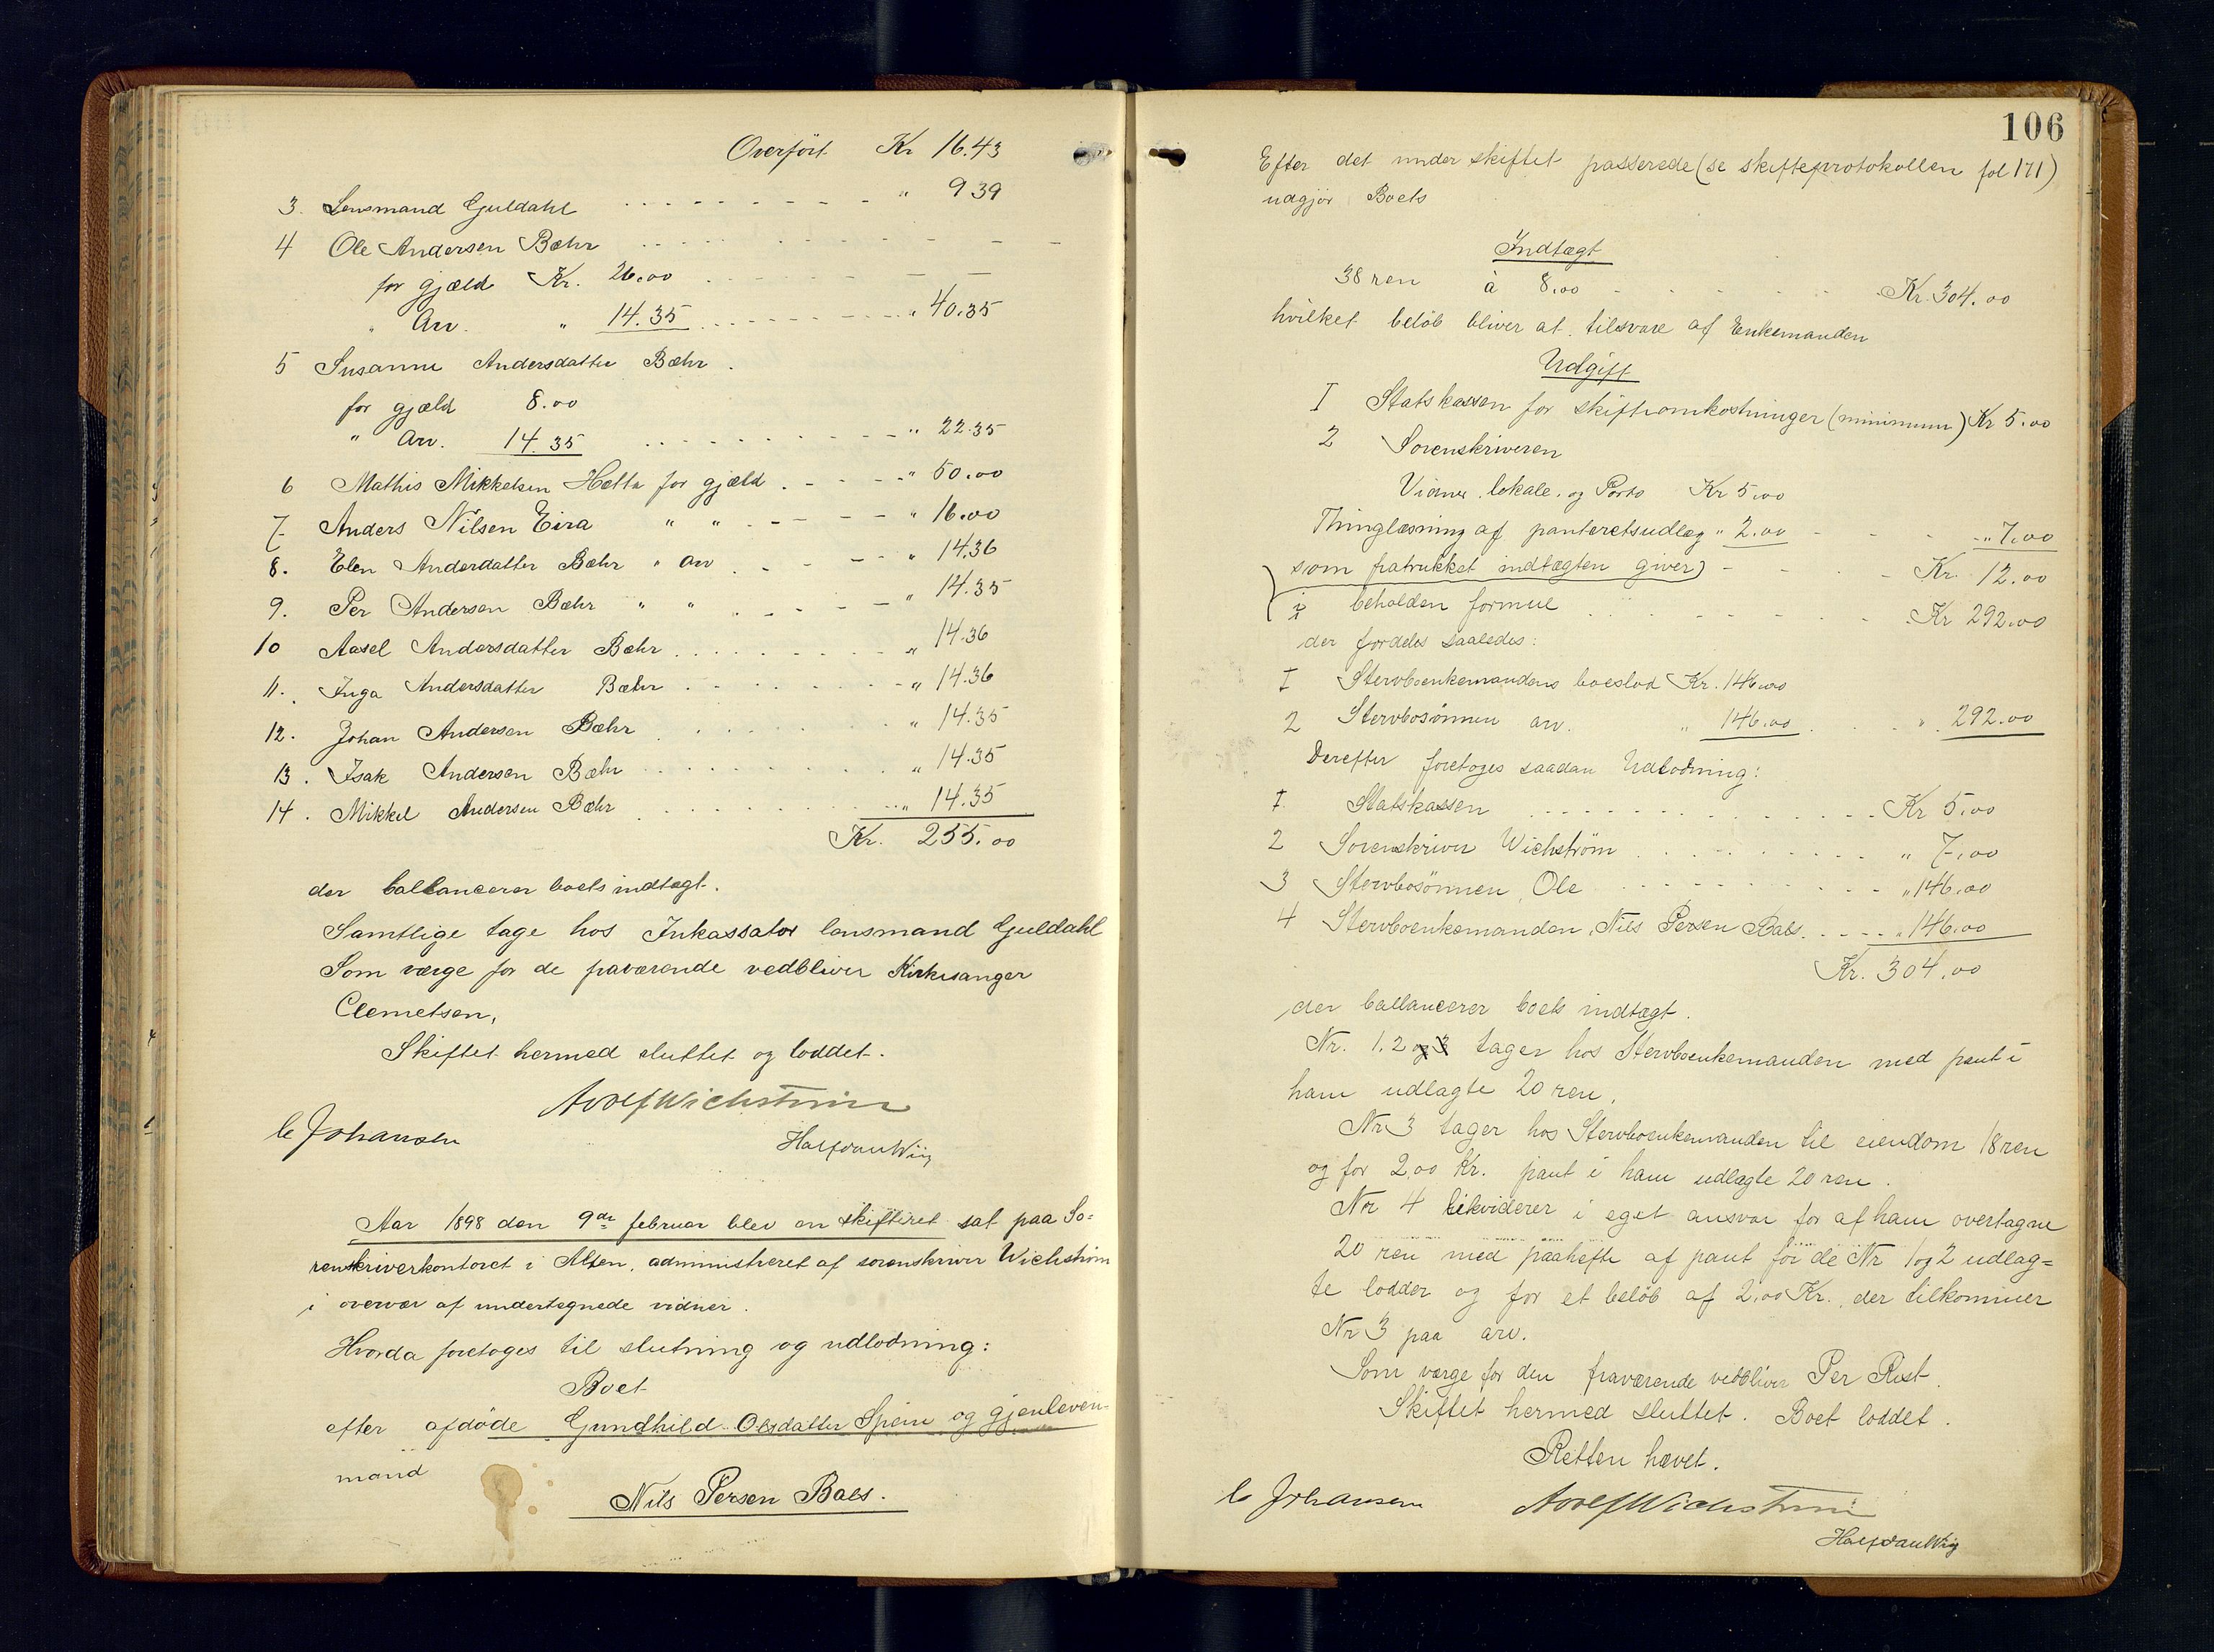 Overført Kr 16.43
3. Lensmand Guldahl " 9 39
4 Ole Andersen Bæhr
for gjæld Kr. 26.00
" Arv. " 14.35 " 40.35
5 Susanne Andersdatter Bæhr
for gjæld 8.00
" Arv. 14.35 " 22.35
6 Mathis Mikkelsen Hætta for gjæld " 50.00
7 Anders Nilsen Eira " " " 16.00
8. Elen Andersdatter Bæhr " arv " 14.36
9. Per Andersen Bæhr " " " 14.35
10 Aasel Andersdatter Bæhr " 14.36
11. Inga Andersdatter Bæhr " 14.36
12. Johan Andersen Bæhr " 14.35
13. Isak Andersen Bæhr " 14.35
14. Mikkel Andersen Bæhr " 14.35
Kr. 255.00
der ballancerer boets indtægt.
Samtlige tage hos Inkassator lensmand Guldahl
Som værge for de fraværende vedbliver Kirkesanger
Clemetsen,
Skiftet hermed sluttet og loddet.
Adolf Wichstrøm
C Johansen
Halfdan Wiig
Aar 1898 den 9de februar blev en skifteret sat paa So-
renskriverkontoret i Alten, administreret af sorenskriver Wichstrøm
i overvær af undertegnede vidner.
Hvorda foretoges til slutning og udlodning:
Boet
efter afdøde Gundhild Olsdatter Spein og gjenleven-
mand
Nils Persen Bals.
106
Efter det under skiftet passerede (se skifteprotokollen fol 171)
udgjør Boets
Indtægt
38 ren à 8.00 Kr. 304.00
hvilket beløb bliver at tilsvare af Enkemanden
Udgift
I Statskassen for skifteomkostninger (minimum) Kr 5.00
2 Sorenskriveren
Vidner, lokale, og Porto Kr 5.00
Thinglæsning af panteretsudlæg " 2.00 " 7.00
som fratrukket indtægten giver) Kr. 12.00
i beholden formue Kr 292.00
der fordeles saaledes:
I Stervboenkemandens boeslod Kr. 146.00
2 Stervbosønnen arv. " 146.00 " 292.00
Derefter foretoges saadan Udlodning:
I Statskassen Kr 5.00
2 Sorenskriver Wichstrøm " 7.00
3 Stervbosønnen, Ole " 146.00
4 Stervboenkemanden, Nils Persen Bals " 146.00
Kr. 304.00
der ballancerer boets indtægt.
Nr. 1, 2 og 3 tager hos Stervboenkemanden med pant i
ham udlagte 20 ren.
Nr 3 tager hos Stervboenkemanden til eiendom 18 ren
og for 2.00 Kr. pant i ham udlagte 20 ren.
Nr 4 likviderer i eget ansvar for af ham overtagne
20 ren med paahefte af pant for de Nr 1 og 2 udlag-
te lodder og for et beløb af 2.00 Kr. der tilkommer
Nr 3 paa arv.
Som værge for den fraværende vedbliver Per Rist.
Skiftet hermed sluttet. Boet loddet.
Retten hævet.
C Johansen
Adolf Wichstrøm
Halfdan Wiig